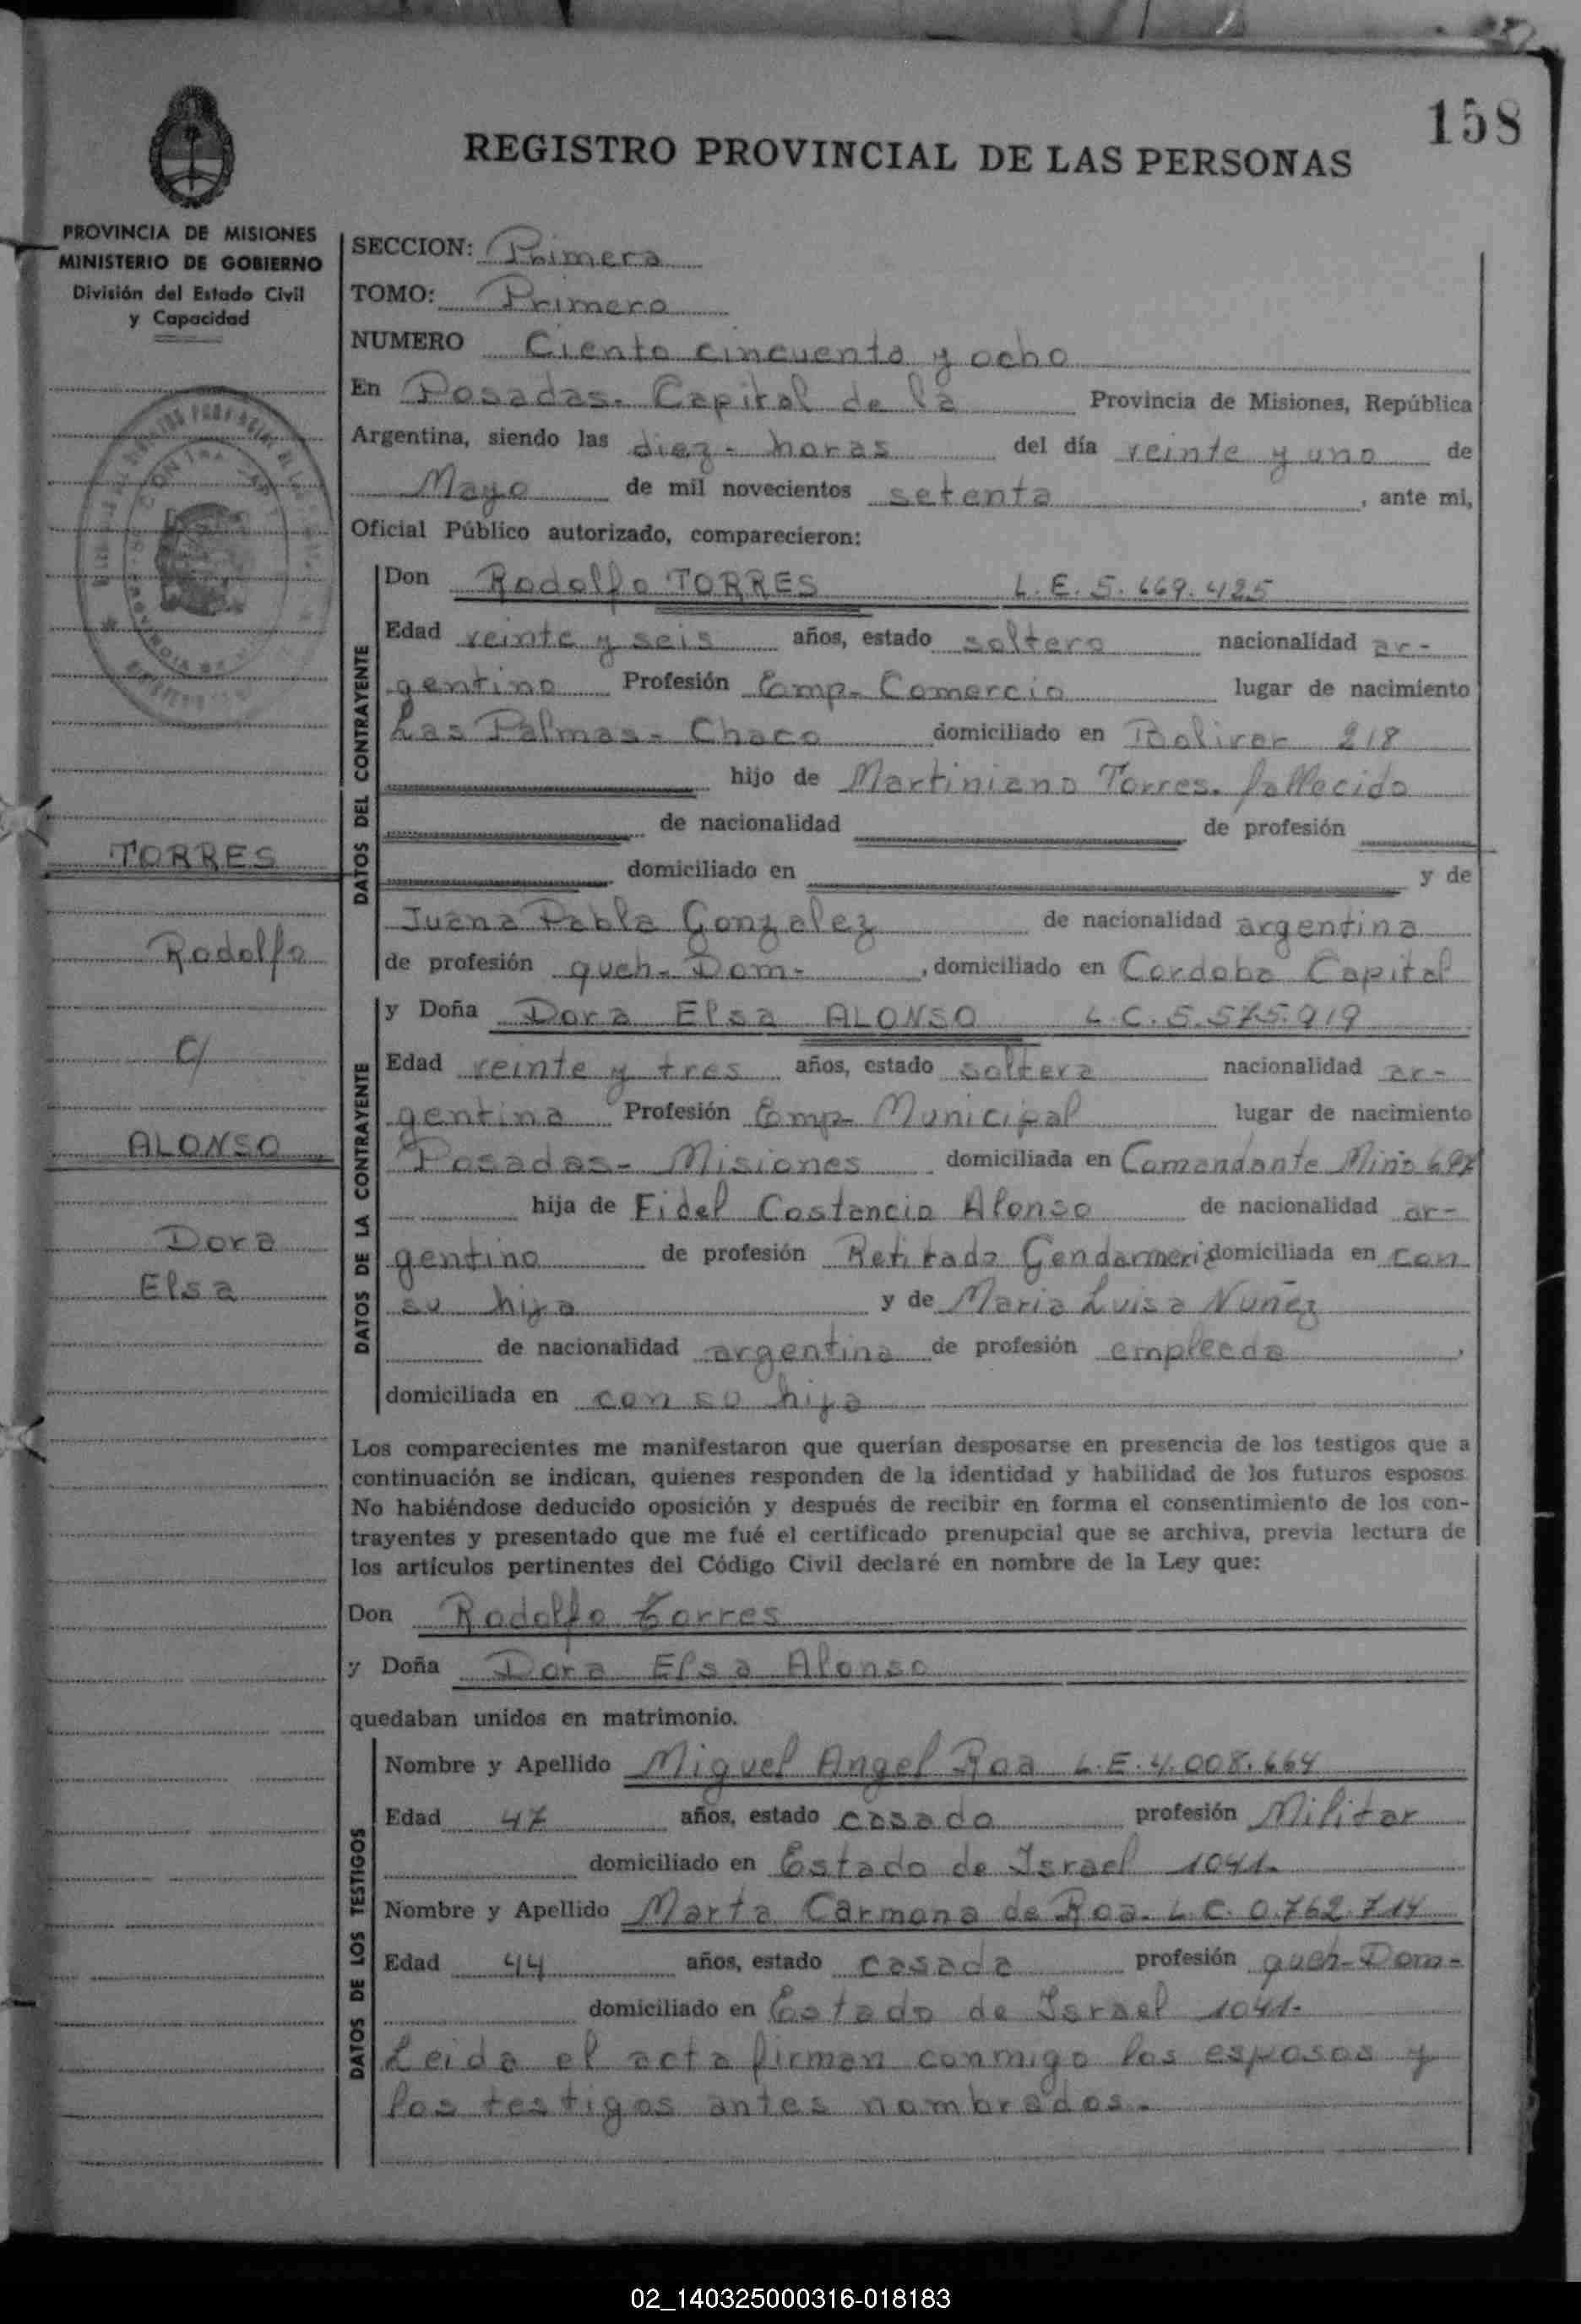 158
REGISTRO PROVINCIAL DE LAS PERSONAS
PROVINCIA DE MISIONES
MINISTERIO DE GOBIERNO
División del Estado Civil
y Capacidad
TORRES
Rodolfo
c/
ALONSO
Dora
Elsa
SECCION: Primera
TOMO: Primero
NUMERO Ciento cincuenta y ocho
En Posadas. Capital de la Provincia de Misiones, República
Argentina, siendo las diez- horas del día veinte y uno de
Mayo de mil novecientos setenta, ante mi,
Oficial Público autorizado, comparecieron:
DATOS DEL CONTRAYENTE
Don Rodolfo TORRES L.E. 5.669.425
Edad veinte y seis años, estado soltero nacionalidad ar-
gentino Profesión Emp- Comercio lugar de nacimiento
Las Palmas- Chaco domiciliado en Bolivar 218
hijo de Martiniano Torres. fallecido
de nacionalidad de profesión
domiciliado en y de
Juana Pabla Gonzalez de nacionalidad argentina
de profesión queh- Dom-, domiciliado en Cordoba Capital
DATOS DE LA CONTRAYENTE
y Doña Dora Elsa ALONSO L.C. 5.575.919
Edad veinte y tres años, estado soltera nacionalidad ar-
gentina Profesión Emp- Municipal lugar de nacimiento
Posadas- Misiones domiciliada en Comandante Miño
hija de Fidel Costancio Alonso de nacionalidad ar-
gentino de profesión Retirado Gendarmeria domiciliada en con
su hija y de Maria Luisa Nuñez
de nacionalidad argentina de profesión empleada,
domiciliada en con su hija
Los comparecientes me manifestaron que querían desposarse en presencia de los testigos que a
continuación se indican, quienes responden de la identidad y habilidad de los futuros esposos
No habiéndose deducido oposición y después de recibir en forma el consentimiento de los con-
trayentes y presentado que me fué el certificado prenupcial que se archiva, previa lectura de
los artículos pertinentes del Código Civil declaré en nombre de la Ley que:
Don Rodolfo Torres
y Doña Dora Elsa Alonso
quedaban unidos en matrimonio.
DATOS DE LOS TESTIGOS
Nombre y Apellido Miguel Angel Roa L.E. 4.008.664
Edad 47 años, estado casado profesión Militar
domiciliado en Estado de Israel 1041-
Nombre y Apellido Marta Carmona de Roa. L.C. 0.762.714
Edad 44 años, estado casada profesión queh- Dom-
domiciliado en Estado de Israel 1041-
Leida el acta firman conmigo los esposos y
los testigos antes nombrados.
02_140325000316-018183